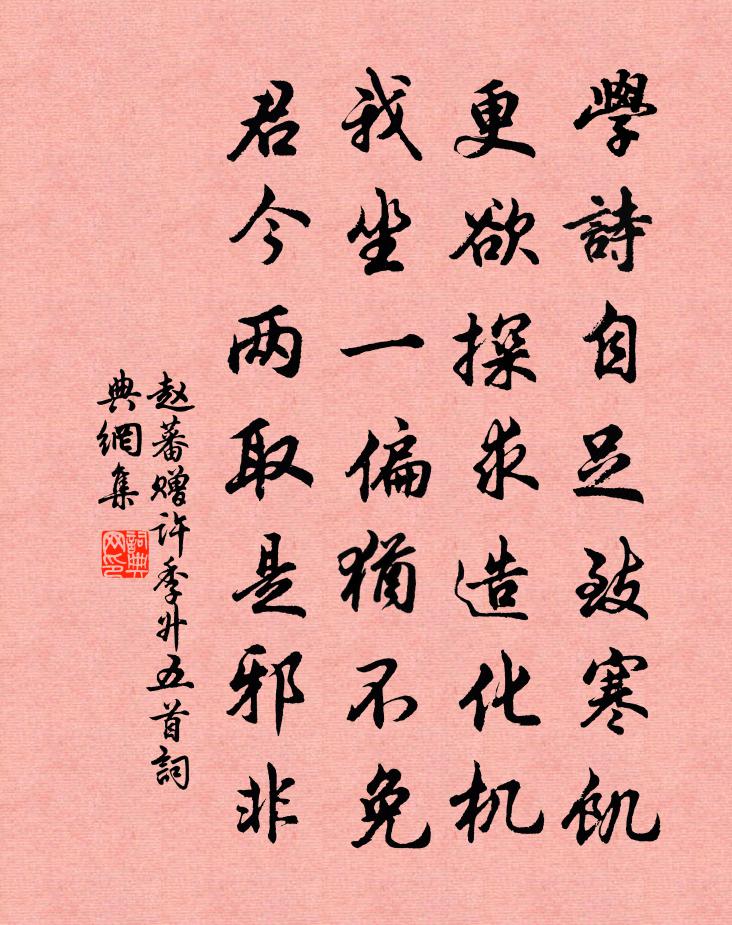 學詩自足致寒飢
更欲探求造化机
我坐一偏猶不免
君今两取是邪非
赵蕃赠许季升五首詞
典網集
詞典
网印